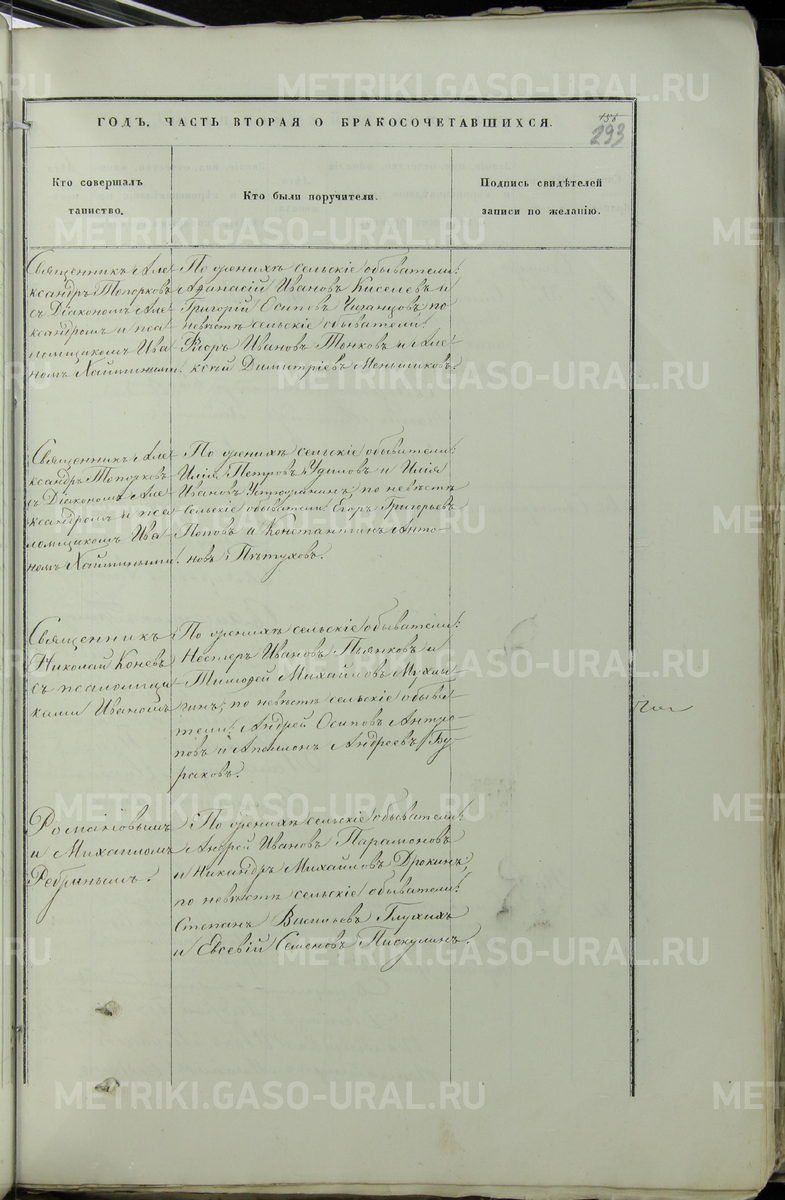 ГОДЪ, ЧАСТЬ ВТОРАЯ О БРАКОСОЧЕТАВШИХСЯ.
293
Кто совершалъ
таинство.
Кто были поручители.
Подпись свидѣтелей
записи по желанію.
Священникъ Але-
ксандръ Топорковъ
съ Діакономъ Але-
ксандромъ и пса-
ломщикомъ Ива-
номъ
По женихѣ сельскіе обыватели:
Афанасій Ивановъ Киселевъ и
Григорій Есиповъ по
невѣстѣ сельскіе обыватели:
Ивановъ Тонковъ и Але-
ксѣй Димитріевъ Меньшиковъ.
Священникъ Але-
ксандръ Топорковъ
съ Діакономъ Але-
ксандромъ и пса-
ломщикомъ Ива-
номъ
По женихѣ сельскіе обыватели:
Илія Петровъ и Илія
Ивановъ по невѣстѣ
сельскіе обыватели: Егоръ Григорьевъ
Поповъ и Константинъ Анто-
новъ Пѣтуховъ.
Священникъ
Николай Коневъ
съ псаломщи-
ками Иваномъ
По женихѣ сельскіе обыватели:
Нестеръ Ивановъ Пьянковъ и
Тимофей Михайловъ Мухлы-
гинъ; по невѣстѣ сельскіе обыва-
тели: Андрей Осиповъ Антро-
повъ и Аполлонъ Андреевъ Бу-
раковъ.
и Михаиломъ
По женихѣ сельскіе обыватели:
Андрей Ивановъ Парамоновъ
и Никандръ Михайловъ Дрокинъ,
по невѣстѣ сельскіе обыватели:
Степанъ Васильевъ Глухихъ
и Евсевій Семеновъ Пискулинъ.
METRIKI.GASO-URAL.RU